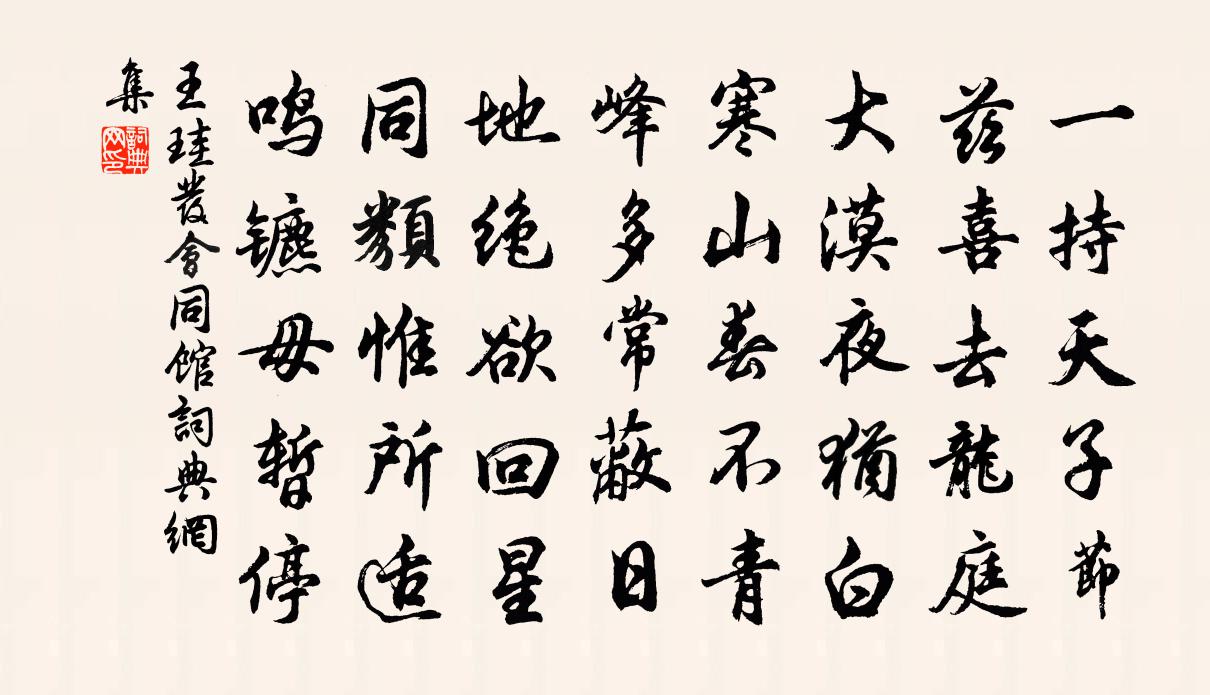 一持天子節
兹喜去龍庭
大漠夜猶白
寒山春不青
峰多常蔽日
地绝欲回星
同類惟所适
鸣镳毋暂停
王珪發會同馆詞典網
集
詞典
网印